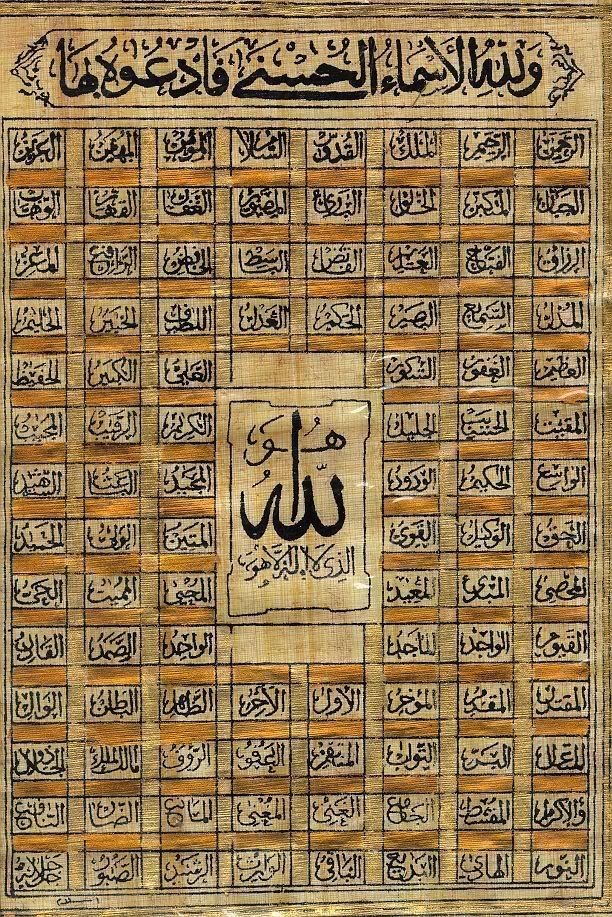 ولله الأسماء الحسنى فادعوه بها
الرحمن الرحيم الملك القدوس السلام المؤمن المهيمن العزيز
الجبار المتكبر الخالق البارئ المصور الغفار القهار الوهاب
الرزاق الفتاح العليم القابض الباسط الخافض الرافع المعز
المذل السميع البصير الحكم العدل اللطيف الخبير الحليم
العظيم الغفور الشكور العلي الكبير الحفيظ
المقيت الحسيب الجليل الكريم الرقيب المجيب
الواسع الحكيم الودود المجيد الباعث الشهيد
الحق الوكيل القوي المتين الولي الحميد
المحصي المبدئ المعيد المحيي المميت الحي
القيوم الواجد الماجد الواحد الصمد القادر
هو
الله
الذي لا إله إلا هو
المقتدر المقدم المؤخر الأول الآخر الظاهر الباطن الوالي
المتعال البر التواب المنتقم العفو الرؤف مالك الملك ذو الجلال
والإكرام المقسط الجامع الغني المغني المانع الضار النافع
النور الهادي البديع الباقي الوارث الرشيد الصبور جل جلاله